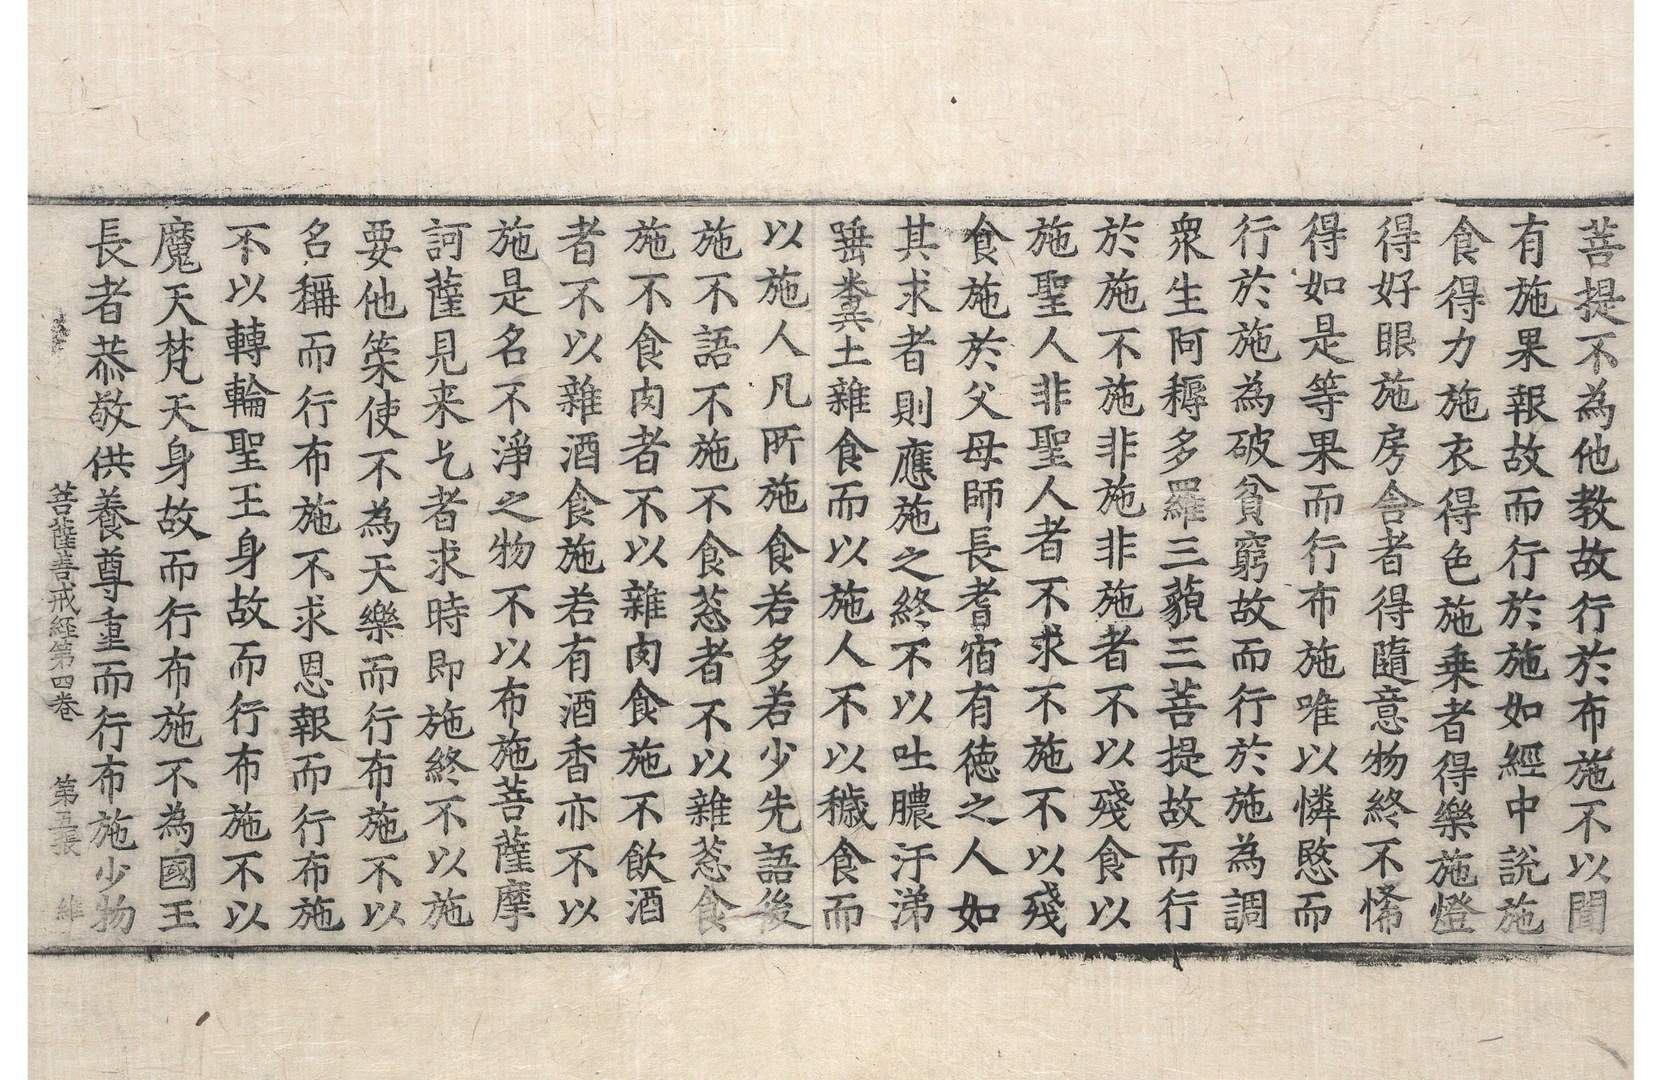 菩提不為他教故行於布施不以聞
有施果報故而行於施如經中說施
食得力施衣得色施乗者得樂施燈
得好眼施房舎者得隨意物終不悕
得如是等果而行布施唯以憐愍而
行於施為破貧窮故而行於施為調
衆生阿耨多羅三藐三菩提故而行
於施不施非施非施者不以殘食以
施聖人非聖人者不求不施不以殘
食施於父母師長耆宿有徳之人如
其求者則應施之終不以吐膿汙涕
唾糞土雜食而以施人不以穢食而
以施人凡所施食若多若少先語後
施不語不施不食葱者不以雜葱食
施不食肉者不以雜肉食施不飲酒
者不以雜酒食施若有酒香亦不以
施是名不淨之物不以布施菩薩摩
訶薩見来乞者求時即施終不以施
要他策使不為天樂而行布施不以
名稱而行布施不求恩報而行布施
不以轉輪聖王身故而行布施不以
魔天梵天身故而行布施不為國王
長者恭敬供養尊重而行布施少物
菩薩善戒経第四卷 第五張 維